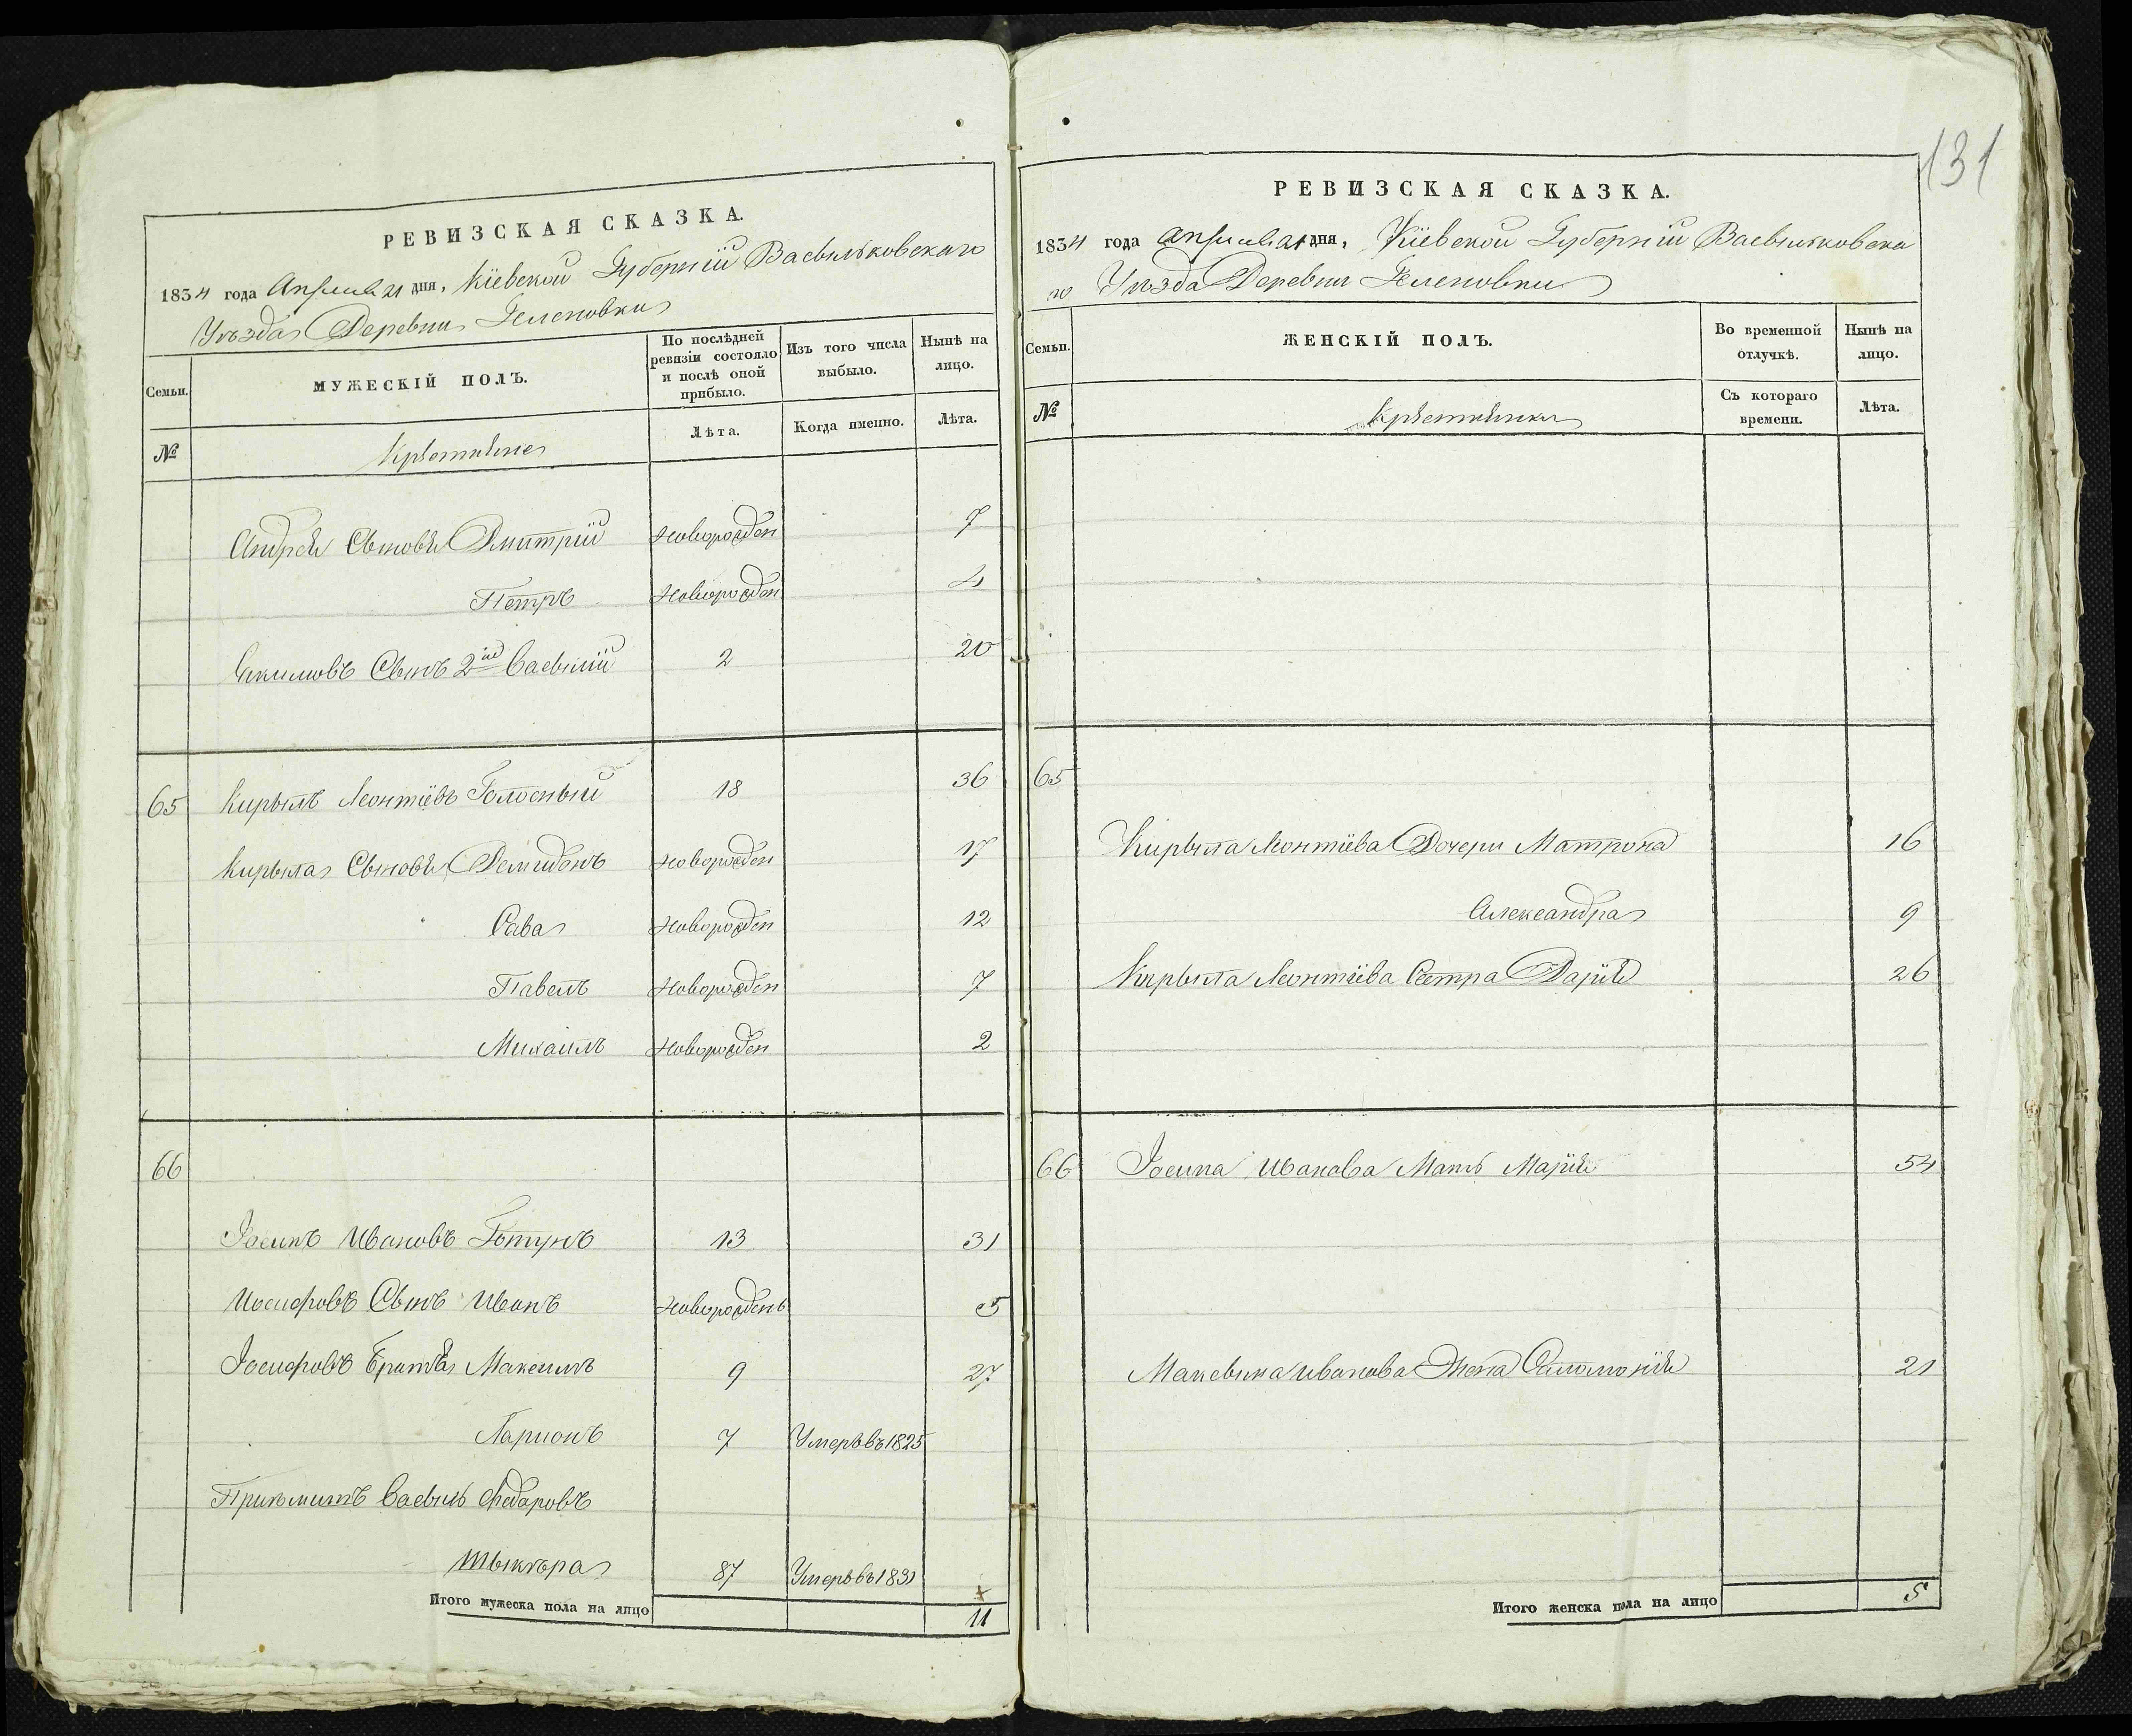 131
РЕВИЗСКАЯ СКАЗКА.
1834 года Апреля 21 дня, Кіевской Губерніи Васыльковскаго
Уѣзда Деревни Геленовки
Семьи.
МУЖЕСКІЙ ПОЛЪ.
По послѣдней
ревизіи состояло
и послѣ оной
прибыло.
Изъ того числа
выбыло.
Нынѣ на
лицо.
№
Крѣстяне
Лѣта.
Когда именно.
Лѣта.
Андрея Сыновя Дмитрій новорожден 7
Петръ новорожден 4
Якимовъ Сынъ 2й Васылій 2 20
65 Кирылъ Леонтіевъ Голосный 18 36
Кирыла Сыновя Демидонъ новорожден 17
Сава новорожден 12
Павелъ новорожден 7
Михаилъ новорожден 2
66
Іосипъ Ивановъ 13 31
Иосифовъ Сынъ Иванъ новорожденъ 5
Іосифовъ Братья Максимъ 9 27
Ларионъ 7 Умеръ въ 1825
Прикмитъ Васыль Федаровъ
87 Умеръ въ 1831
Итого мужеска пола на лицо 11
РЕВИЗСКАЯ СКАЗКА.
1834 года Апреля 21 дня, Кіевской Губерніи Васыльковска
го Уѣзда Деревни Геленовки
Семьи.
ЖЕНСКІЙ ПОЛЪ.
Во временной
отлучкѣ.
Нынѣ на
лицо.
№
Крѣстянки
Съ котораго
времени.
Лѣта.
65
Кирыла Леонтіева Дочери Матрона 16
Александра 9
Кирыла Леонтіева Сестра Дарія 26
66 Іосипа Иванова Мать Марія 54
Максыма Иванова Жена Саломонія 21
Итого женска пола на лицо 5